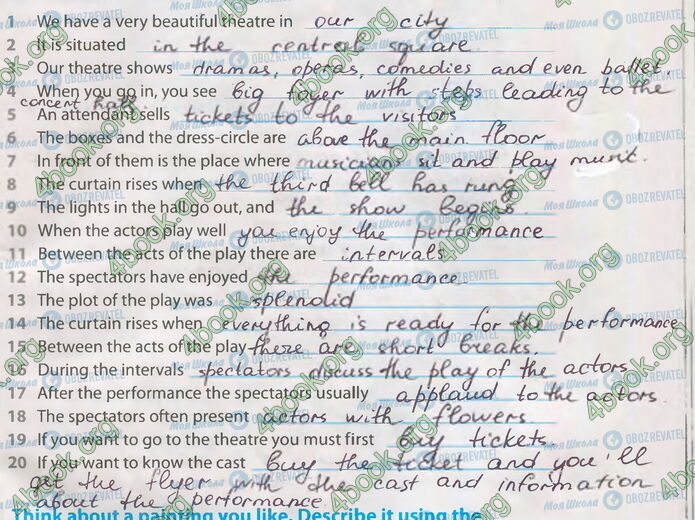 1 We have a very beautiful theatre in our city
2 It is situated in the centreal square.
Our theatre shows dramas, operas, comedies and even ballet.
4 When you go in, you see big foyer with steps leading to the
concert hall.
5 An attendant sells tickets to the visitors
6 The boxes and the dress-circle are above the main floor
7 In front of them is the place where musicians sit and play music.
8 The curtain rises when the third bell has rung
9 The lights in the hall go out, and the show begins.
10 When the actors play well you enjoy the performance
11 Between the acts of the play there are intervals
12 The spectators have enjoyed the performance.
13 The plot of the play was splendid
14 The curtain rises when everything is ready for the performance
15 Between the acts of the play there are short breaks.
16 During the intervals spectators discuss the play of the actors
17 After the performance the spectators usually applaud to the actors.
18 The spectators often present actors with flowers
19 If you want to go to the theatre you must first buy tickets.
20 If you want to know the cast buy the ticket and you'll
get the flyer with the cast and information
about the performance.
Think about a painting you like. Describe it using the
4book.org
Моя Школа OBOZREVATEL